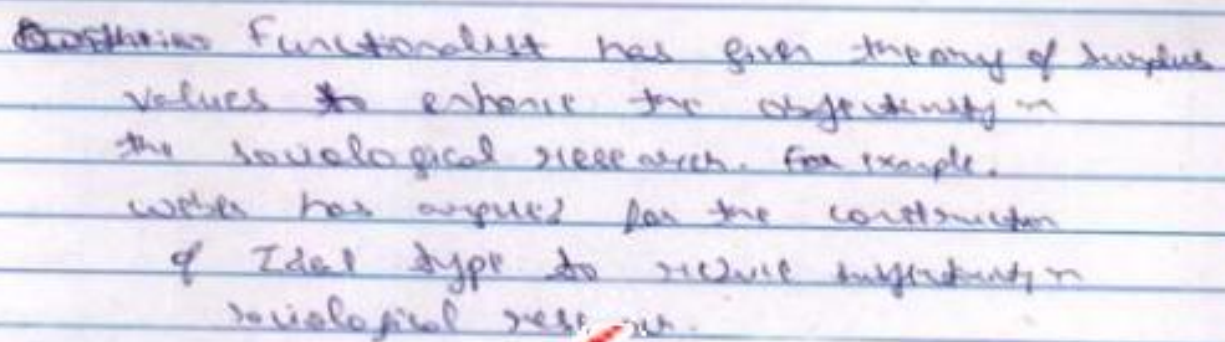 Functionalist has given theory of surplus
values to enhance the objectivity in
the sociological research. For example,
weber has argued for the construction
of Ideal type to reduce subjectivity in
sociological research.